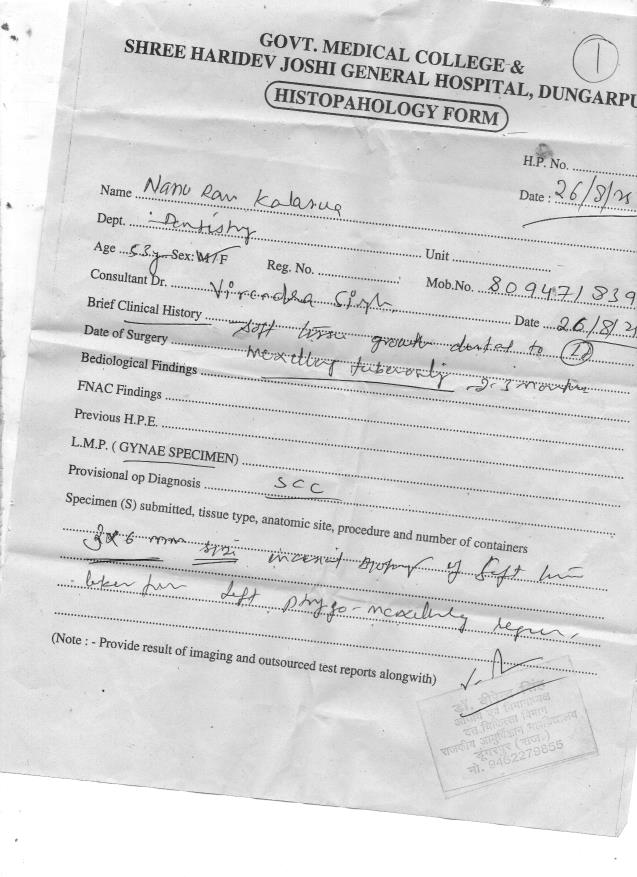 1
GOVT. MEDICAL COLLEGE &
SHREE HARIDEV JOSHI GENERAL HOSPITAL, DUNGARPU
HISTOPAHOLOGY FORM
H.P. No.
Name Nanu Ram Kalasua Date : 26/8/25
Dept. :- Dentistry Unit
Age 53y Sex: M/F Reg. No. Mob.No. 809471839
Consultant Dr. Virendra Singh
Brief Clinical History soft tissue growth distal to Date 26/8/2
Date of Surgery maxillary tuberosity 2-3 months
Bediological Findings
FNAC Findings
Previous H.P.E.
L.M.P. ( GYNAE SPECIMEN)
Provisional op Diagnosis SCC
Specimen (S) submitted, tissue type, anatomic site, procedure and number of containers
3x6 mm size biopsy of soft
taken from left maxillary region
(Note : - Provide result of imaging and outsourced test reports alongwith)
डॉ. सिंह
आचार्य एवं विभागाध्यक्ष
दन्त चिकित्सा विभाग
राजकीय महाविद्यालय
डूंगरपुर (राज.)
मो. 9462279855